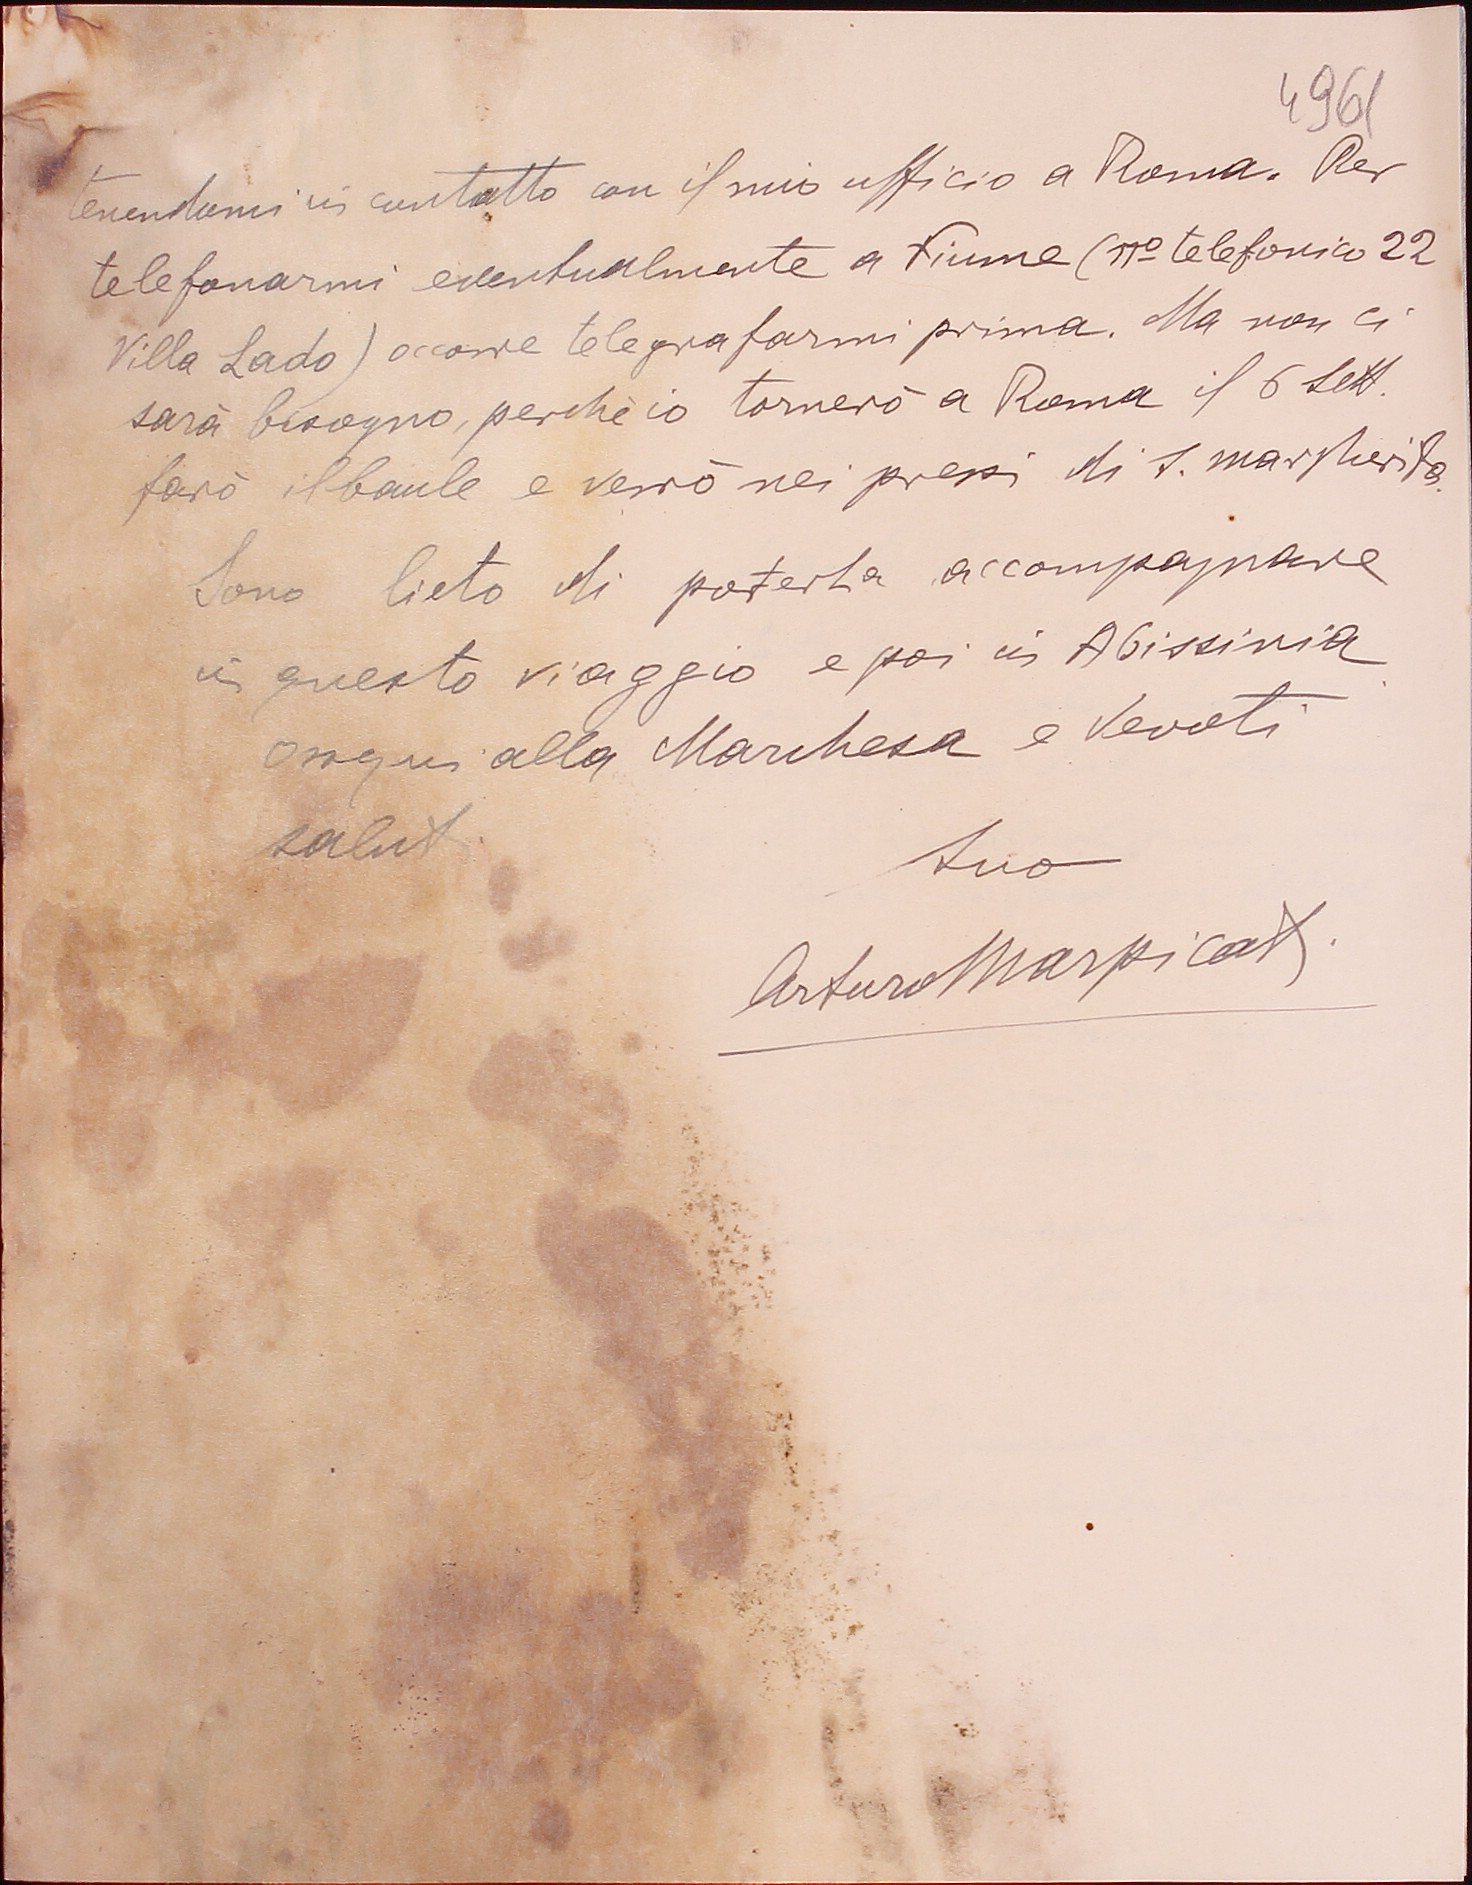 4961
tenendomi in contatto con il mio ufficio a Roma. Per
telefonarmi eventualmente a Fiume (nº telefonico 22
Villa Lado) occorre telegrafarmi prima. Ma non ci
sarà bisogno, perchè io tornerò a Roma il 6 Sett.
farò il baule e verrò nei pressi di S. Margherita.
Sono lieto di poterLa accompagnare
in questo viaggio e poi in Abissinia.
Ossequi alla Marchesa e devoti
saluti.
Suo
Arturo Marpicati.